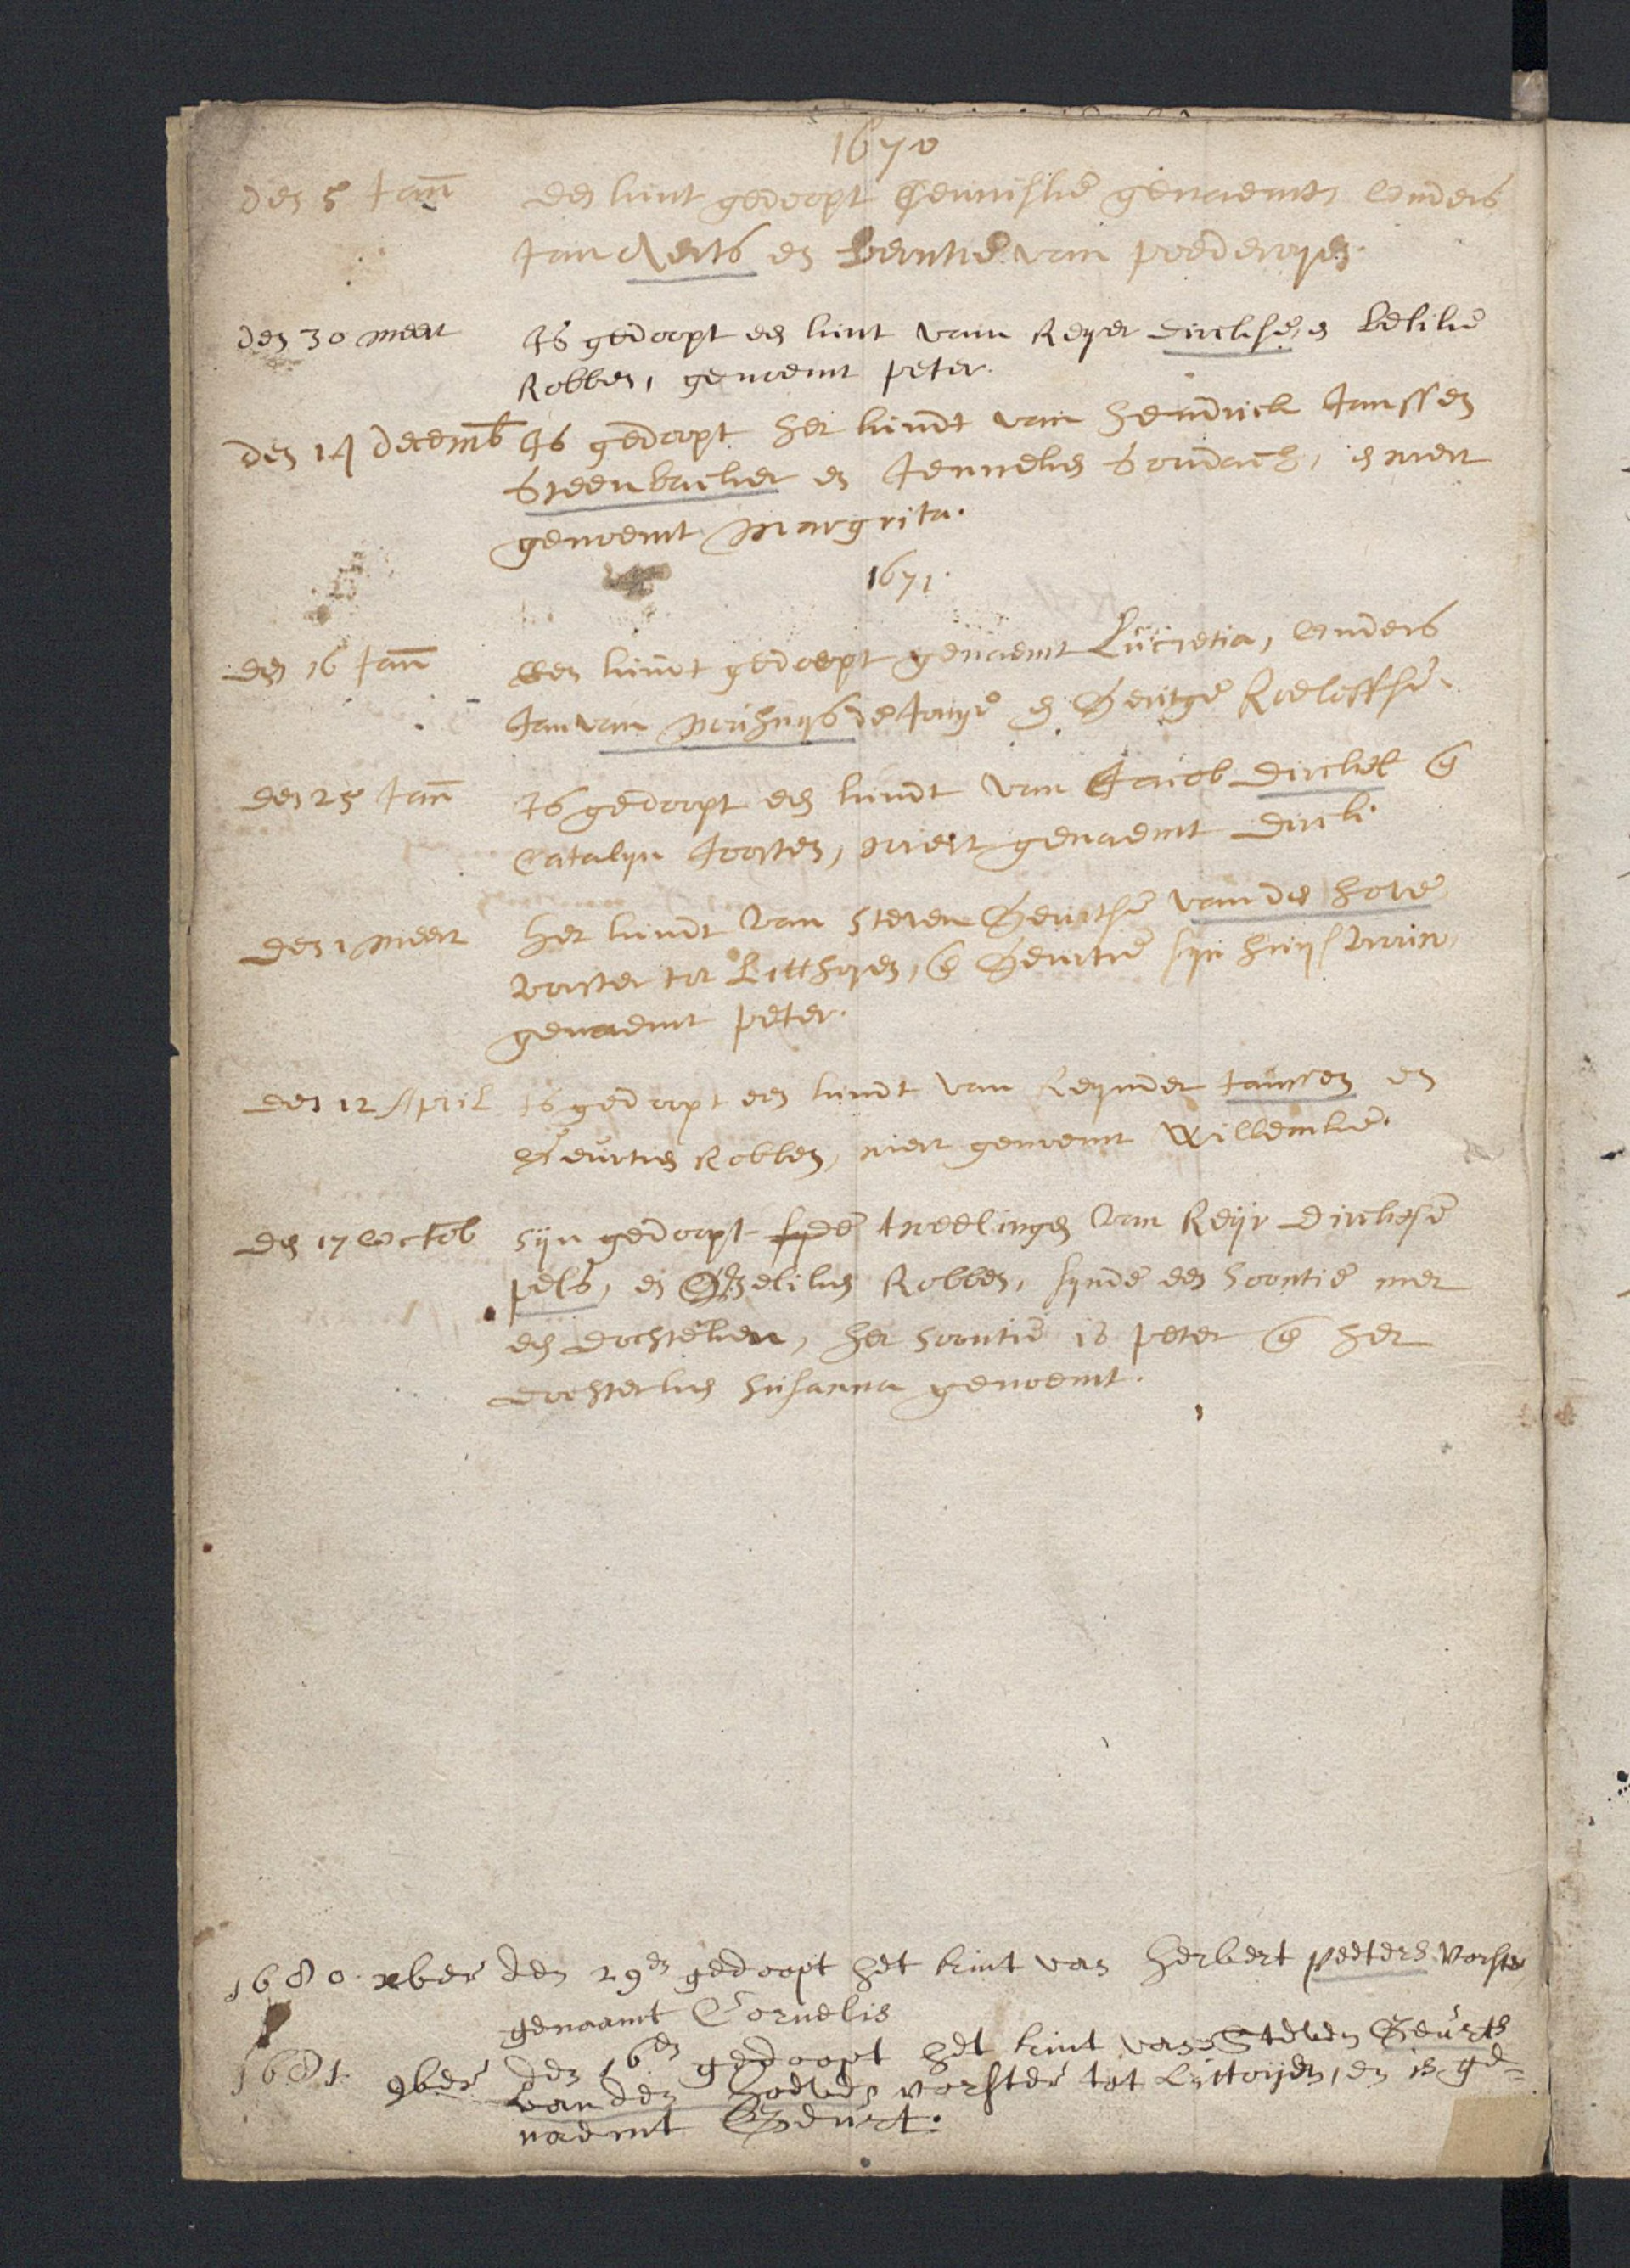 1670
den 5 Jan een kint gedoopt Jenniske genaemt, ouders
Jan Aerts en Berntie van poederoyen.
den 30 meert Is gedoopt een kint van Reyer dirckse, en Belike
Robben, genoemt peter.
den 14 decemb Is gedoopt het kindt van Hendrick Janssen
Steenbacker en Jenneken, wert
genoemt Margrita.
1671.
den 16 Jan een kindt gedoopt genaemt Lucretia, ouders
Jan van de Jonge en Geritge Roeloffse.
den 25 Jan Is gedoopt een kindt van Jacob dircksel en
Catalyn Joosten, wert genaemt dirck.
den 1 meert het kindt van Steven Geurtse van den hove
vorster tot Litthoyen, en Geurtie syn huysvrou,
genaemt peter.
den 12 April Is gedoopt een kindt van Reynder Janssen en
Geurtien Robben, wert genoemt Willemke.
den 17 Octob syn gedoopt de tweelingen van Reyer dirckse
pels, en Belike Robben, synde een soontie met
een dochterken, het soontie is peter en het
dochterken Susanna genoemt.
1680 xber den 29en gedoopt het kint van Herbert peeters vorster
genaamt Cornelis
1681 9ber den 16en gedoopt het kint van Steven Geurts
van den Hoeven vorster tot Littoijen, en is ge=
naemt Geurt.